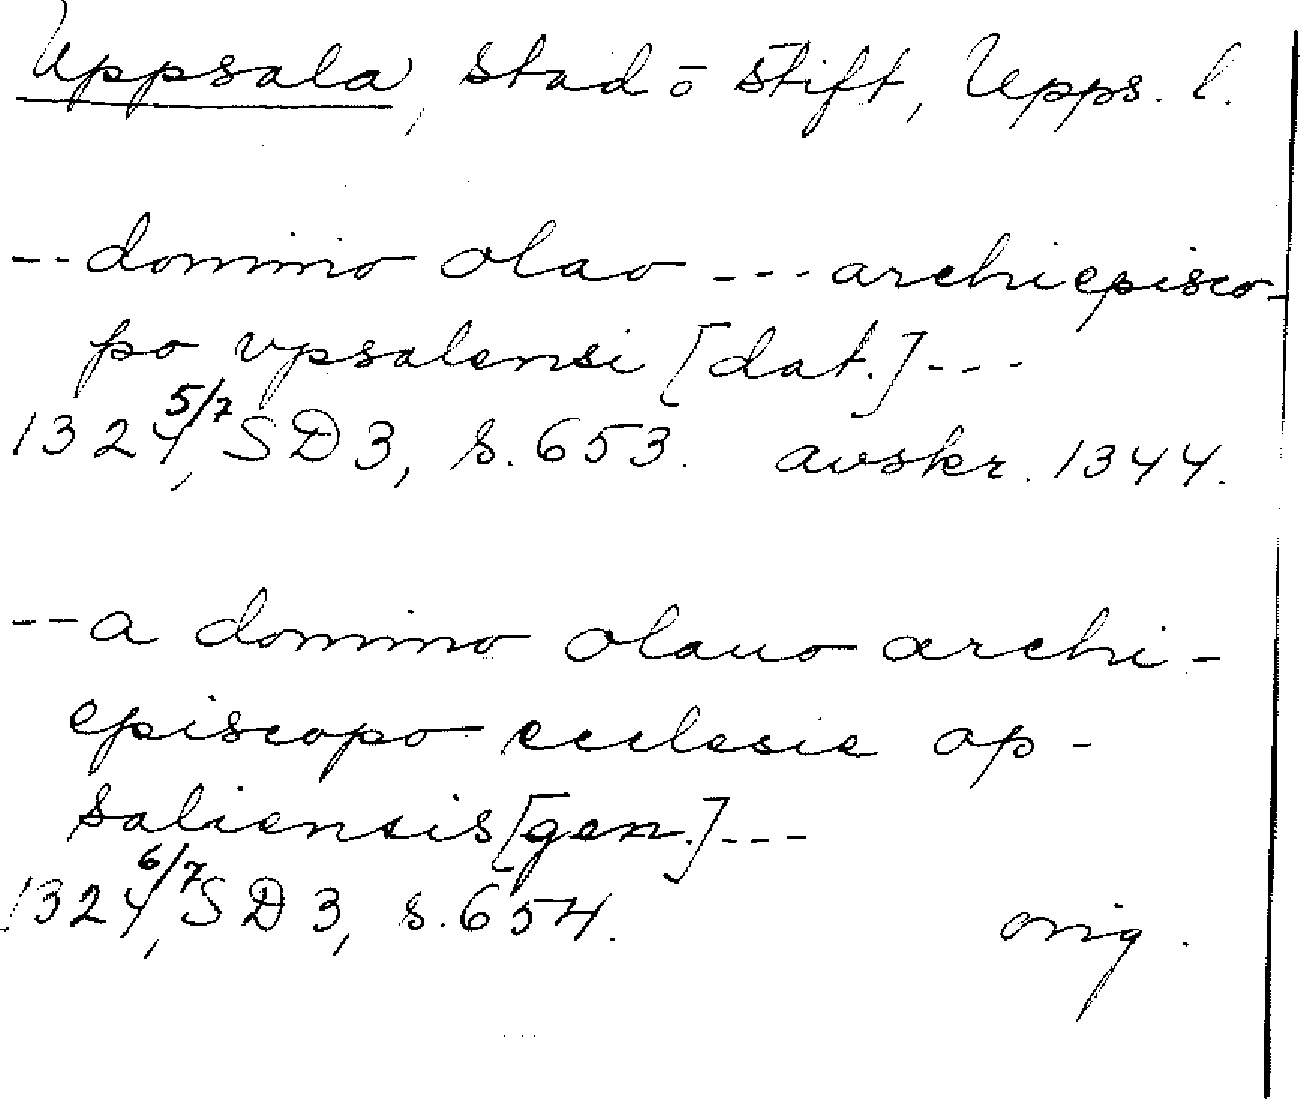 Uppsala, stad ō stift, Upps. l.
-- domino olao --- archiepisco-
po vpsalensi [dat.] ---
1324 5/7, SD 3, s. 653. avskr. 1344.
-- a domino olauo archi-
episcopo ecclesie op-
saliensis [gen.] ---
1324 6/7, SD 3, s. 654. orig.